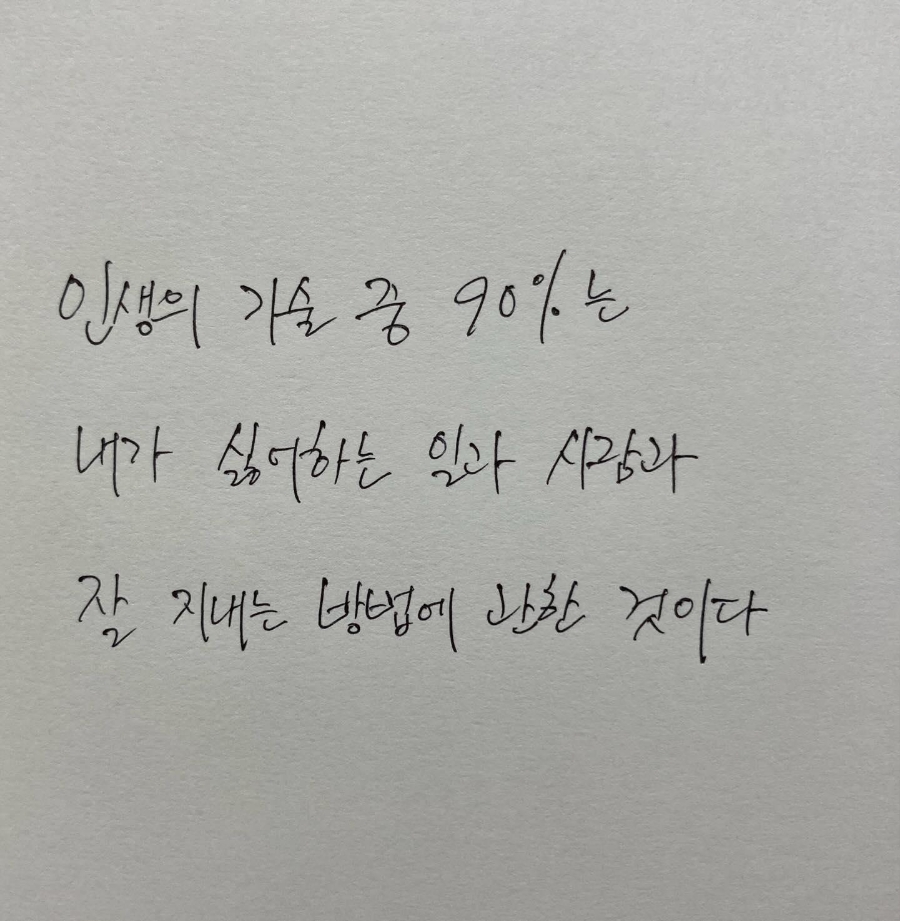 인생의 기술 중 90%는
내가 싫어하는 일과 사람과
잘 지내는 방법에 관한 것이다